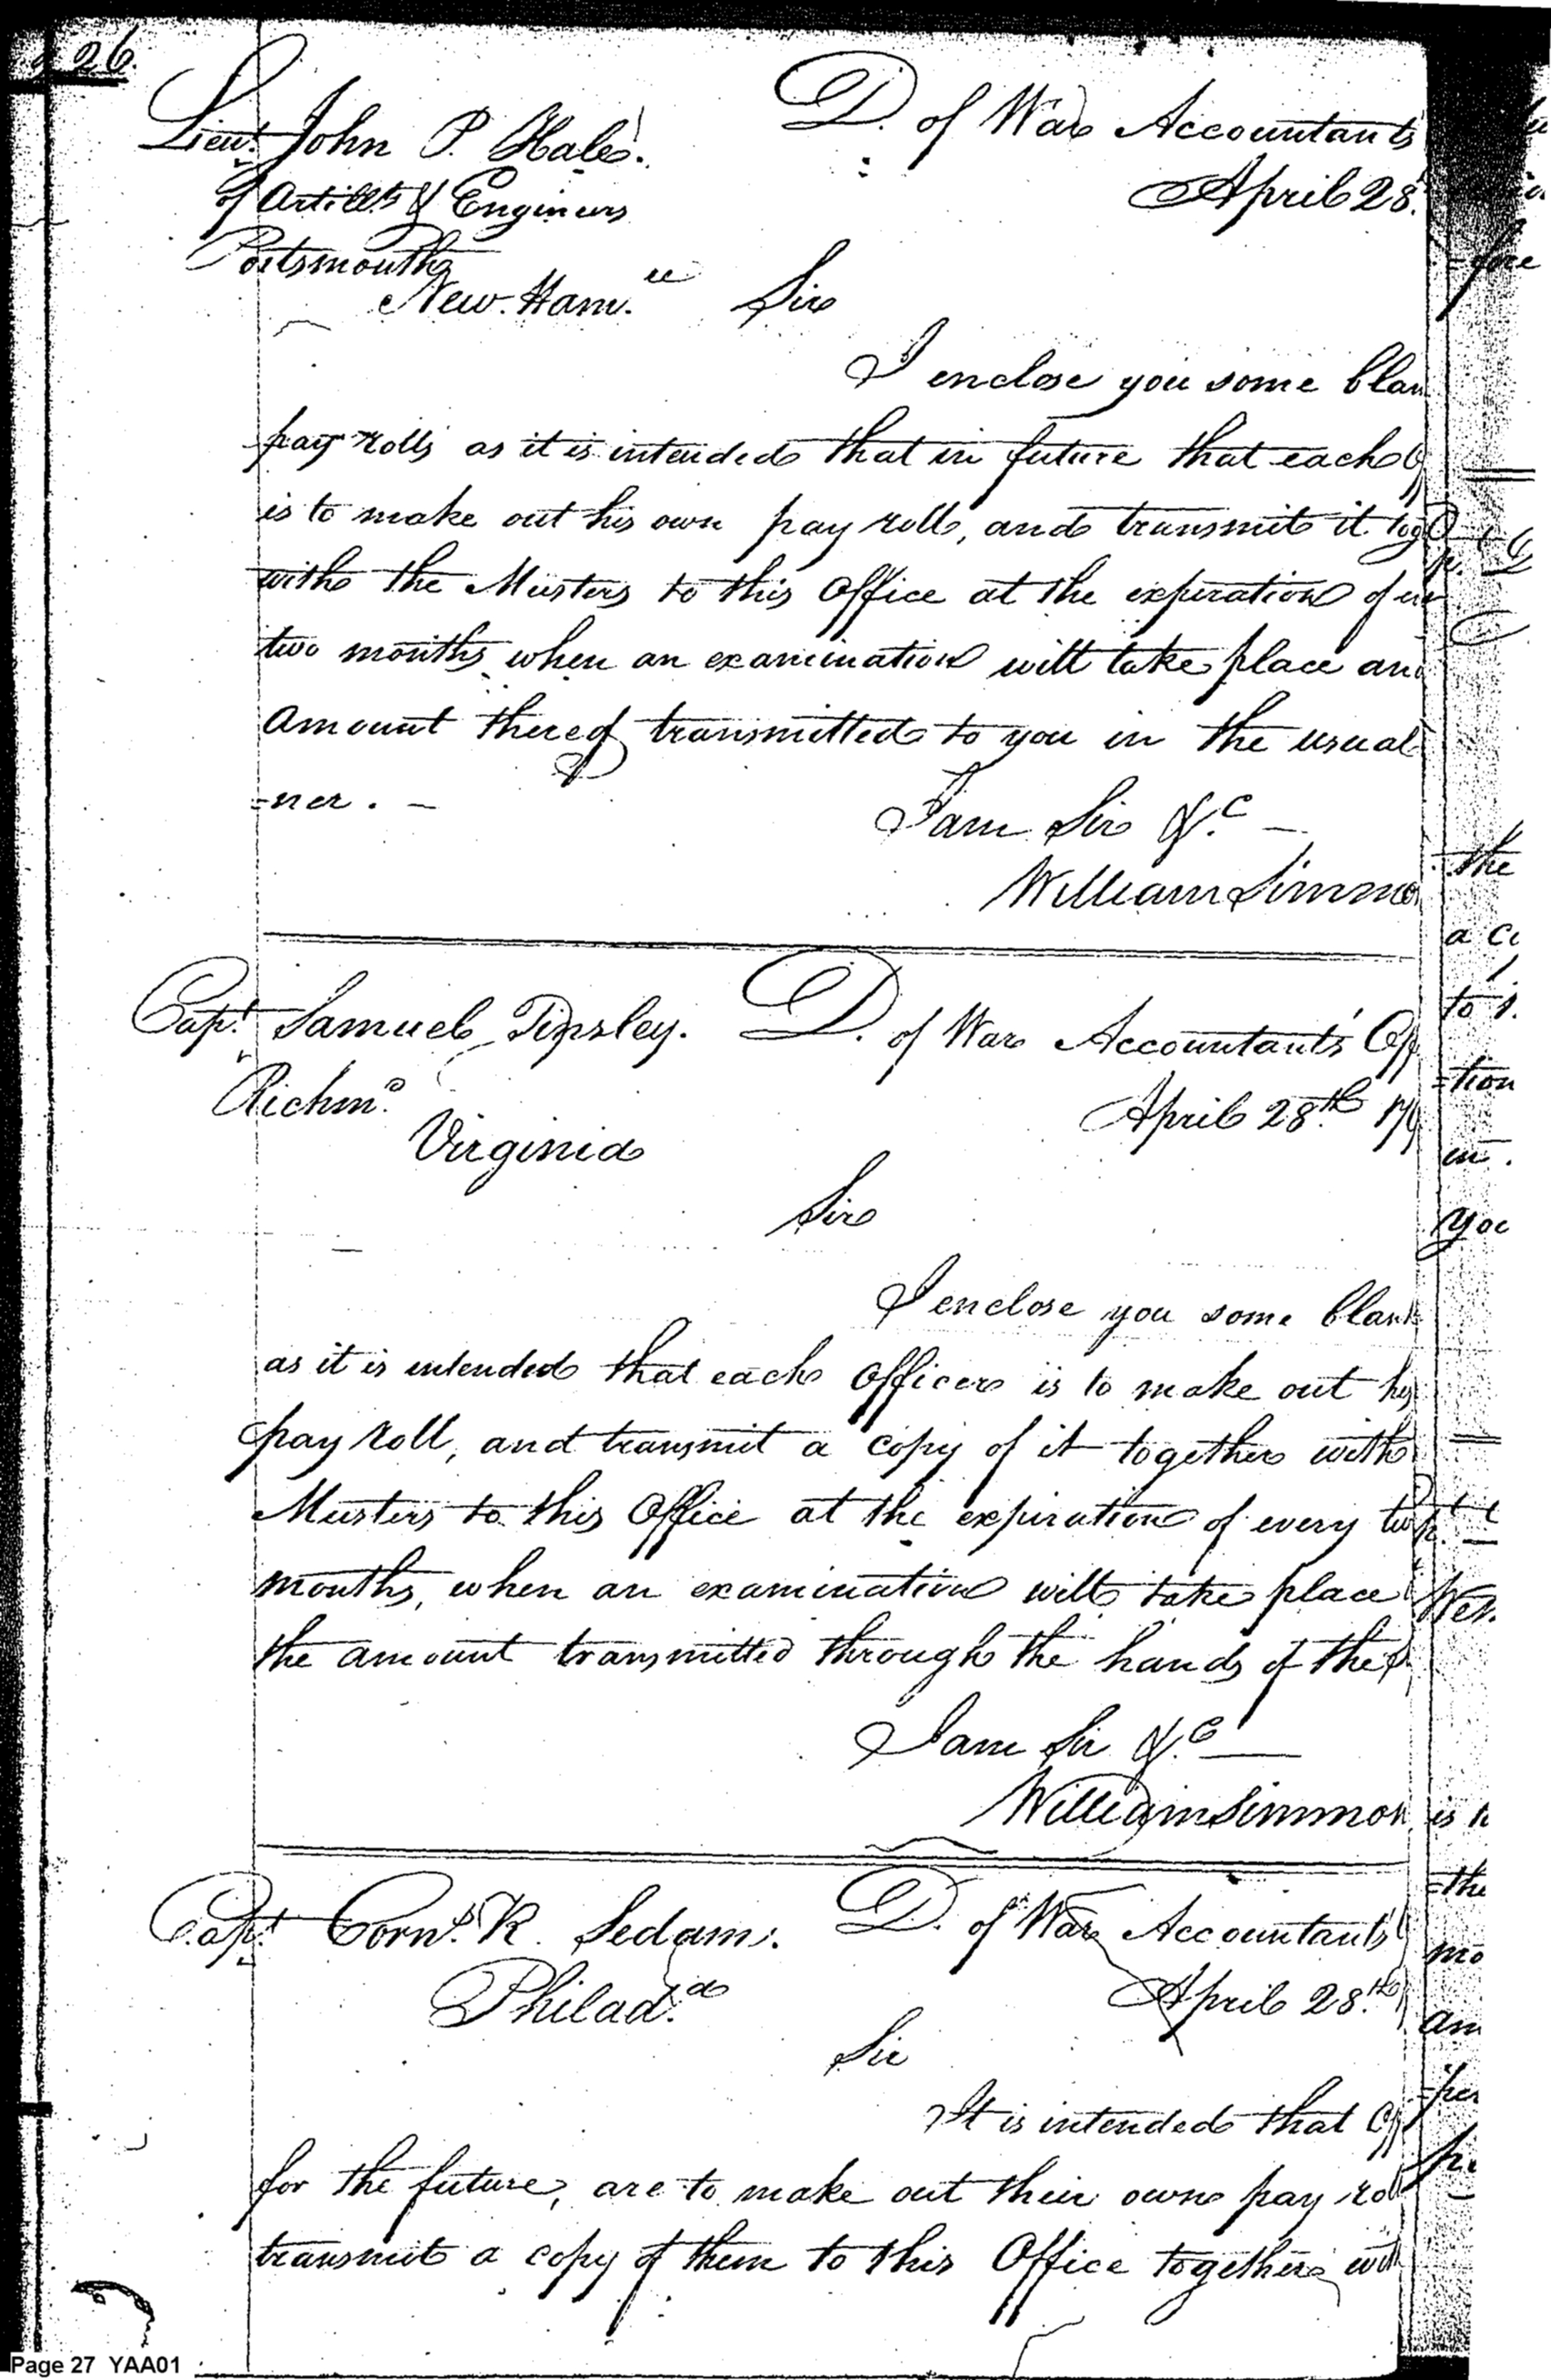 26.
Lieut. John P. Hale.
D. of War Accountants
of Artill.ts & Engineers
April 28.
Portsmouth
New. Ham.
Sir
I enclose you some blan
pay rolls as it is intended that in future that each
is to make out his own pay roll, and transmit it tog
with the Musters to this Office at the expiration of
two months, when an examination will take place an
amount thereof transmitted to you in the usual
=ner. —
I am Sir &.c —
William Simmo
Cap.t Samuel Tinsley.
D. of War Accountants' Off
Richm.d
April 28.th 179
Virginia
Sir
I enclose you some blank
as it is intended that each Officer is to make out his
pay roll, and transmit a copy of it together with
Musters to this Office at the expiration of every two
months, when an examination will take place
the amount transmitted through the hands of the
I am Sir &.c —
William Simmon
Cap.t Corn.s R. Sedam.
D. of War Accountants'
Philad.a
April 28.th
Sir
It is intended that Off
for the future, are to make out their own pay rol
transmit a copy of them to this Office together with
the
a co
to
=tion
you
is
=the
mo
am
=per
Page 27 YAA01